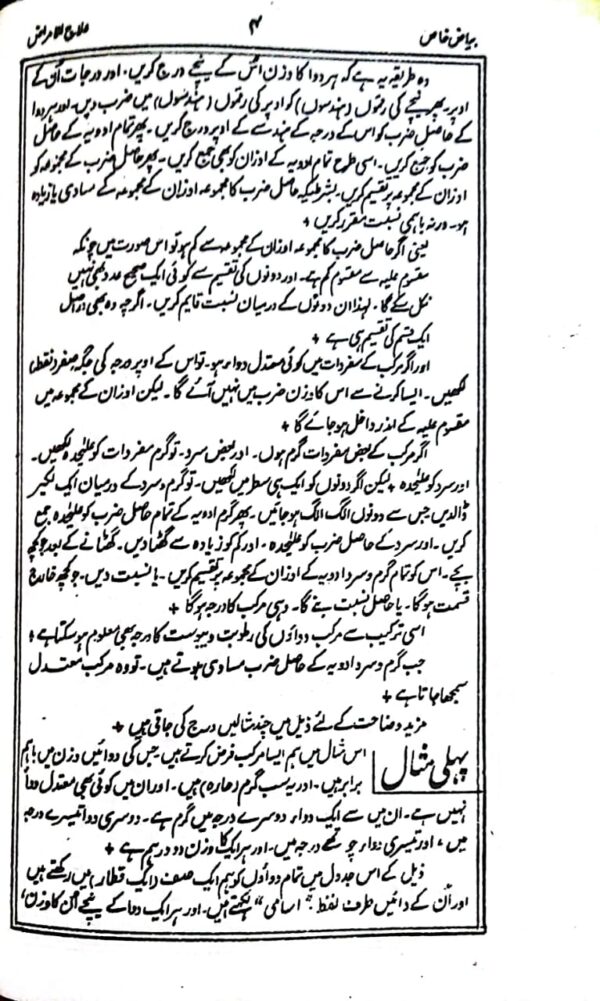 بیاض خاص
۴
علاج الامراض
وہ طریقہ یہ ہے کہ ہر دوا کا وزن اُس کے نیچے درج کریں۔ اور درجات اُن کے
اوپر۔ پھر نیچے کی رقموں (ہندسوں) کو اوپر کی رقموں (ہندسوں) میں ضرب دیں۔ اور ہر دوا
کے حاصل ضرب کو اس کے درجہ کے ہندسے کے اوپر درج کریں۔ پھر تمام ادویہ کے حاصل
ضرب کو جمع کریں۔ اسی طرح تمام ادویہ کے اوزان کو بھی جمع کریں۔ پھر حاصل ضرب کے مجموعہ کو
اوزان کے مجموعہ پر تقسیم کریں۔ بشرطیکہ حاصل ضرب کا مجموعہ اوزان کے مجموعہ کے مساوی یا زیادہ
ہو۔ ورنہ باہمی نسبت مقرر کریں +
یعنی اگر حاصل ضرب کا مجموعہ اوزان کے مجموعہ سے کم ہو تو اس صورت میں چونکہ
مقسوم علیہ سے مقسوم کم ہے۔ اور دونوں کی تقسیم سے کوئی ایک صحیح عدد بھی نہیں
نکل سکے گا۔ لہذا ان دونوں کے درمیان نسبت قایم کریں۔ اگرچہ وہ بھی دراصل
ایک قسم کی تقسیم ہی ہے +
اور اگر مرکب کے مفردات میں کوئی معتدل دوا ہو۔ تو اس کے اوپر درجہ کی جگہ صفر و نقطہ
لکھیں۔ ایسا کرنے سے اس کا وزن ضرب میں نہیں آئے گا۔ لیکن اوزان کے مجموعہ میں
مقسوم علیہ کے اندر داخل ہو جائے گا +
اگر مرکب کے بعض مفردات گرم ہوں۔ اور بعض سرد۔ تو گرم مفردات کو علیٰحدہ لکھیں۔
اور سرد کو علیٰحدہ + لیکن اگر دونوں کو ایک ہی سطر میں لکھیں۔ تو گرم و سرد کے درمیان ایک لکیر
ڈالدیں جس سے دونوں الگ الگ ہو جائیں۔ پھر گرم ادویہ کے تمام حاصل ضرب کو علیٰحدہ جمع
کریں۔ اور سرد کے حاصل ضرب کو علیٰحدہ۔ اور کم کو زیادہ سے گھٹا دیں۔ گھٹانے کے بعد جو کچھ
بچے۔ اس کو تمام گرم و سرد ادویہ کے اوزان کے مجموعہ پر تقسیم کریں۔ یا نسبت دیں۔ جو کچھ خارج
قسمت ہو گا۔ یا حاصل نسبت بنے گا۔ وہی مرکب کا درجہ ہو گا +
اسی ترکیب سے مرکب دواؤں کی رطوبت و یبوست کا درجہ بھی معلوم ہو سکتا ہے +
جب گرم و سرد ادویہ کے حاصل ضرب مساوی ہوتے ہیں۔ تو وہ مرکب معتدل
سمجھا جاتا ہے +
مزید وضاحت کے لئے ذیل میں چند مثالیں درج کی جاتی ہیں +
پہلی مثال
اس مثال میں ہم ایسا مرکب فرض کرتے ہیں جس کی دوائیں وزن میں باہم
برابر ہیں۔ اور یہ سب گرم (حارہ) ہیں۔ اور ان میں کوئی بھی معتدل دوا
نہیں ہے۔ ان میں سے ایک دوا دوسرے درجہ میں گرم ہے۔ دوسری دوا تیسرے درجہ
میں، اور تیسری دوا چوتھے درجہ میں۔ اور ہر ایک کا وزن دو درہم ہے +
ذیل کے اس جدول میں تمام دواؤں کو ہم ایک صف (ایک قطار) میں رکھتے ہیں
اور اُن کے دائیں طرف لفظ "اسامی" لکھتے ہیں۔ اور ہر ایک دوا کے نیچے اُن کا وزن،